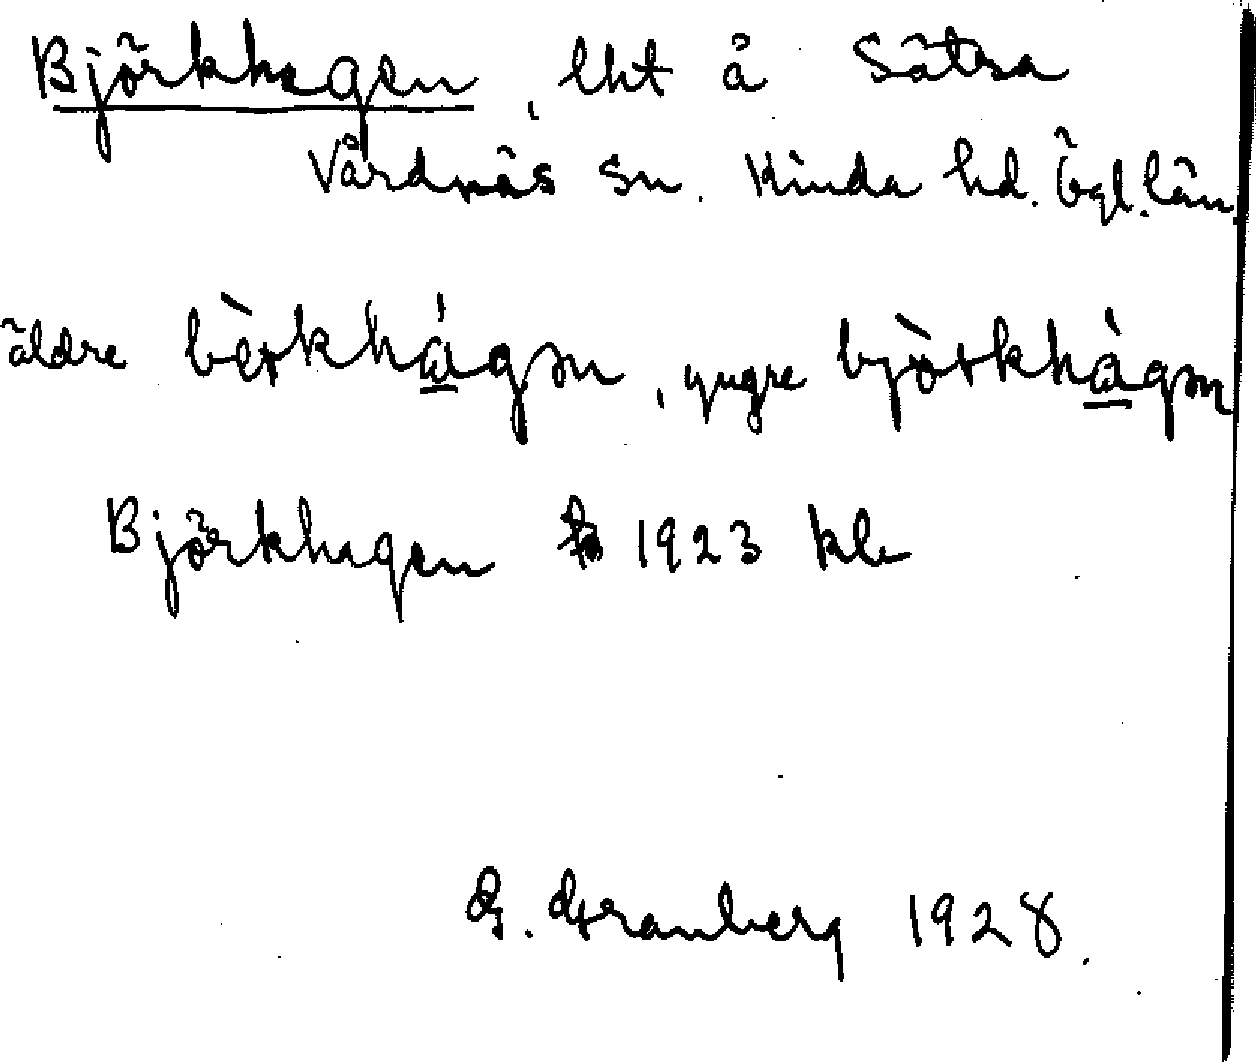 Björkhagen, lht å Sätra
Vårdnäs sn. Kinda hd. Ögl. län
äldre bèrkhágən, yngre bjòrkhágən
Björkhagen 1923 kle
G. Granberg 1928.